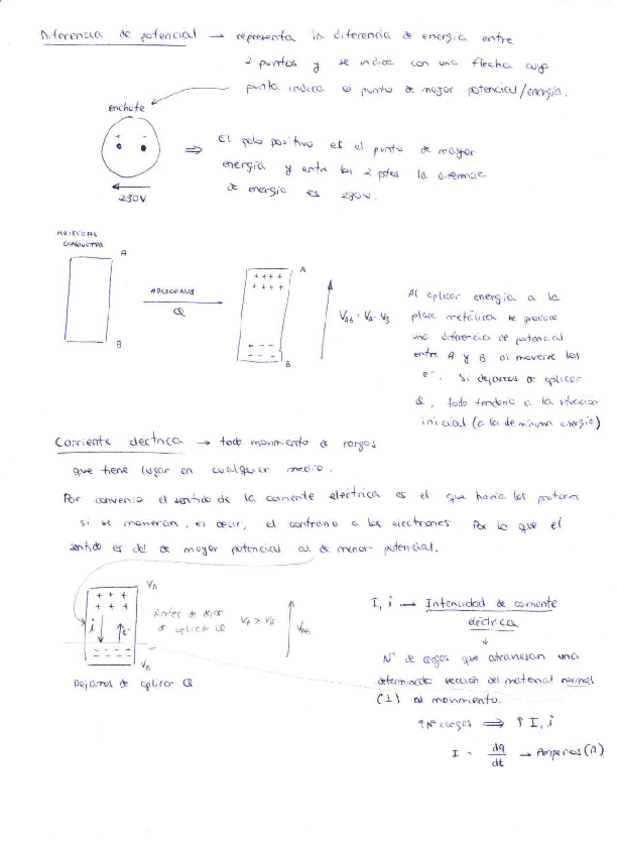 Diferencia de potencial → representa la diferencia de energía entre
2 puntos y se indica con una flecha cuya
punta indica el punto de mayor potencial/energía.
enchufe
+ -
230V
⇒ El polo positivo es el punto de mayor
energía y entre los 2 ptos la diferencia
de energía es 230V.
MATERIAL
CONDUCTOR
A
B
ADICIONAMOS
Q
A
++++
++++
---
---
B
VAB = VA - VB
Al aplicar energía a la
placa metálica se produce
una diferencia de potencial
entre A y B al moverse los
e-. Si dejamos de aplicar
Q, todo tendería a la situación
inicial (a la de mínima energía)
Corriente eléctrica → todo movimiento de cargas
que tiene lugar en cualquier medio.
Por convenio el sentido de la corriente eléctrica es el que harían los protones
si se movieran, es decir, el contrario a los electrones. Por lo que el
sentido es del de mayor potencial al de menor potencial.
VA
+ + +
+ + +
i e-
VB
Antes de dejar
de aplicar Q
VA > VB
VAB
Dejamos de aplicar Q
I, i → Intensidad de corriente
eléctrica
↓
Nº de cargas que atraviesan una
determinada sección del material normal
(⊥) al movimiento.
↑Nº cargas ⇒ ↑ I, i
I = dq/dt → Amperios (A)